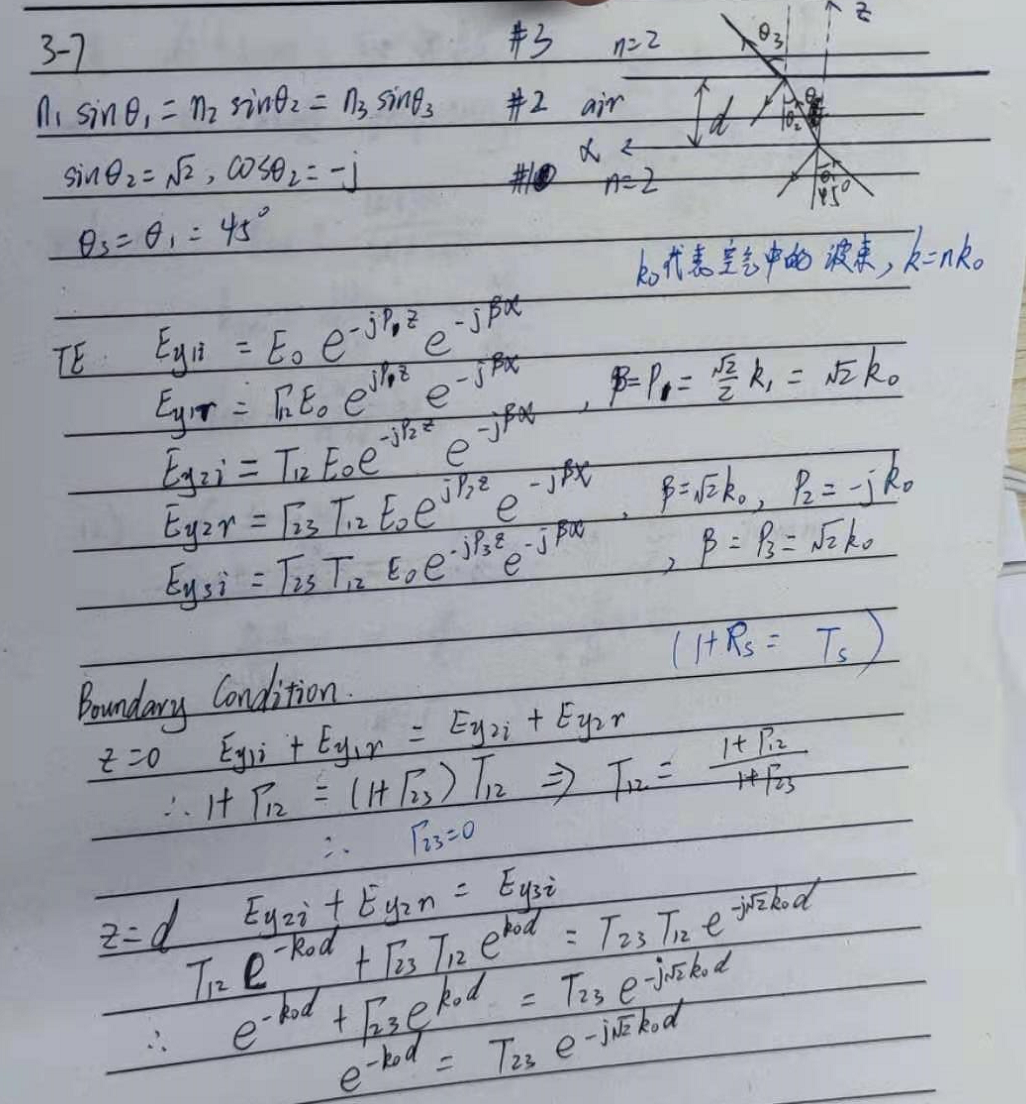 3-7
#3 n=2 θ₃ z
n₁ sinθ₁ = n₂ sinθ₂ = n₃ sinθ₃
#2 air θ₂ d
sinθ₂ = √2 , cosθ₂ = -j
x
#1 n=2 θ₁ 45°
θ₃ = θ₁ = 45°
k₀代表空气中的波束, k=nk₀
TE E_{y1i} = E₀ e^{-jP₁z} e^{-jβx}
E_{y1r} = Γ₁₂E₀ e^{jP₁z} e^{-jβx} , β=P₁ = √2/2 k₁ = √2 k₀
E_{y2i} = T₁₂ E₀ e^{-jP₂z} e^{-jβx}
E_{y2r} = Γ₂₃ T₁₂ E₀ e^{jP₂z} e^{-jβx} , β=√2k₀, P₂ = -jk₀
E_{y3i} = T₂₃ T₁₂ E₀ e^{-jP₃z} e^{-jβx} , β = P₃ = √2k₀
(1+R_s = T_s)
Boundary Condition.
z=0 E_{y1i} + E_{y1r} = E_{y2i} + E_{y2r}
∴ 1+Γ₁₂ = (1+Γ₂₃)T₁₂ ⇒ T₁₂ = (1+Γ₁₂)/(1+Γ₂₃)
∴ Γ₂₃=0
z=d E_{y2i} + E_{y2r} = E_{y3i}
T₁₂ e^{-k₀d} + Γ₂₃ T₁₂ e^{k₀d} = T₂₃ T₁₂ e^{-j√2k₀d}
∴ e^{-k₀d} + Γ₂₃e^{k₀d} = T₂₃ e^{-j√2k₀d}
e^{-k₀d} = T₂₃ e^{-j√2k₀d}